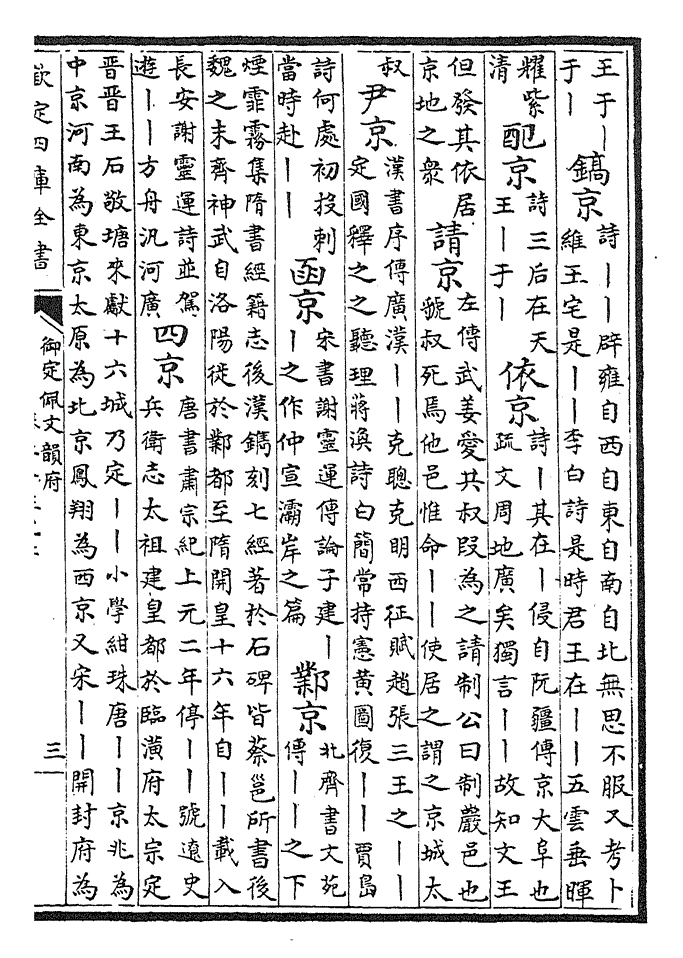 王于丨
于丨
鎬京
詩丨丨辟雍自西自東自南自北無思不服又考卜
維王宅是丨丨李白詩是時君王在丨丨五雲垂暉
耀紫
清
配京
詩三后在天
王丨于丨
依京
詩丨其在丨侵自阮疆傳京大阜也
疏文周地廣矣獨言丨丨故知文王
但發其依居
京地之衆
請京
左傳武姜愛共叔段為之請制公曰制巖邑也
虢叔死焉他邑惟命丨丨使居之謂之京城太
叔
尹京
漢書序傳廣漢丨丨克聰克明西征賦趙張三王之丨丨
定國釋之之聽理蔣渙詩白簡常持憲黄圖復丨丨賈島
詩何處初投刺
當時赴丨丨
函京
宋書謝靈運傳論子建丨
丨之作仲宣灞岸之篇
鄴京
北齊書文苑
傳丨丨之下
煙霏霧集隋書經籍志後漢鐫刻七經著於石碑皆蔡邕所書後
魏之末齊神武自洛陽徙於鄴都至隋開皇十六年自丨丨載入
長安謝靈運詩並駕
遊丨丨方舟汎河廣
四京
唐書肅宗紀上元二年停丨丨號遼史
兵衛志太祖建皇都於臨潢府太宗定
晋晋王石敬塘來獻十六城乃定丨丨小學紺珠唐丨丨京兆為
中京河南為東京太原為北京鳳翔為西京又宋丨丨開封府為
欽定四庫全書
御定佩文韻府
三